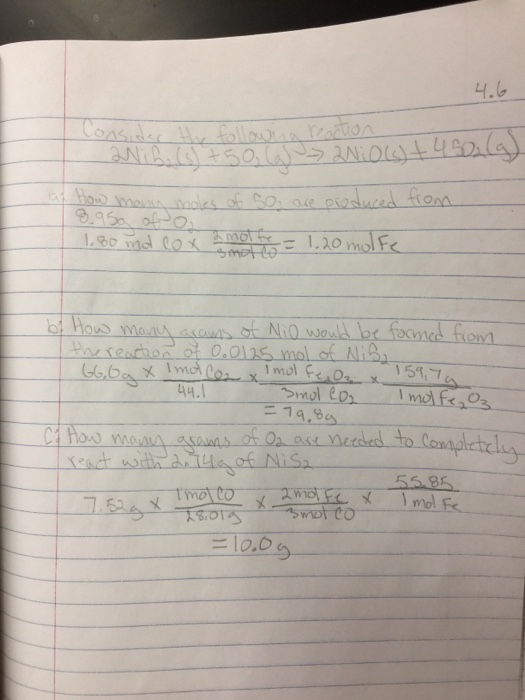 4.6
Consider the following reaction
2NiS₂(s) + 5O₂(g) → 2NiO(s) + 4SO₂(g)
a: How many moles of SO₂ are produced from
8.95g of O₂
1.80 mol CO x 2 mol Fe / 3 mol CO = 1.20 mol Fe
b: How many grams of NiO would be formed from
the reaction of 0.0125 mol of NiS₂
66.0g x 1 mol CO₂ / 44.1 x 1 mol Fe₂O₃ / 3 mol CO₂ x 159.7g / 1 mol Fe₂O₃
= 79.8g
C: How many grams of O₂ are needed to completely
react with 2.74g of NiS₂
7.52g x 1 mol CO / 28.01g x 2 mol Fe / 3 mol CO x 55.85 / 1 mol Fe
= 10.0g